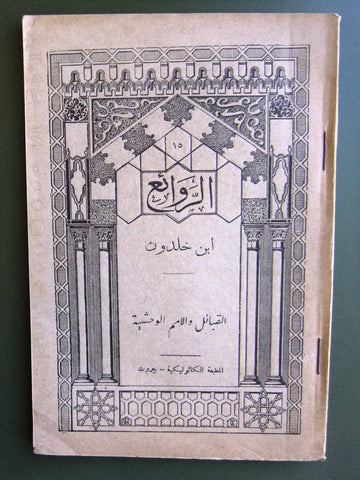 ١٥
الرَّوائع
ابن خلدون
القبائل والامم الوحشية
المطبعة الكاثوليكية - بيروت